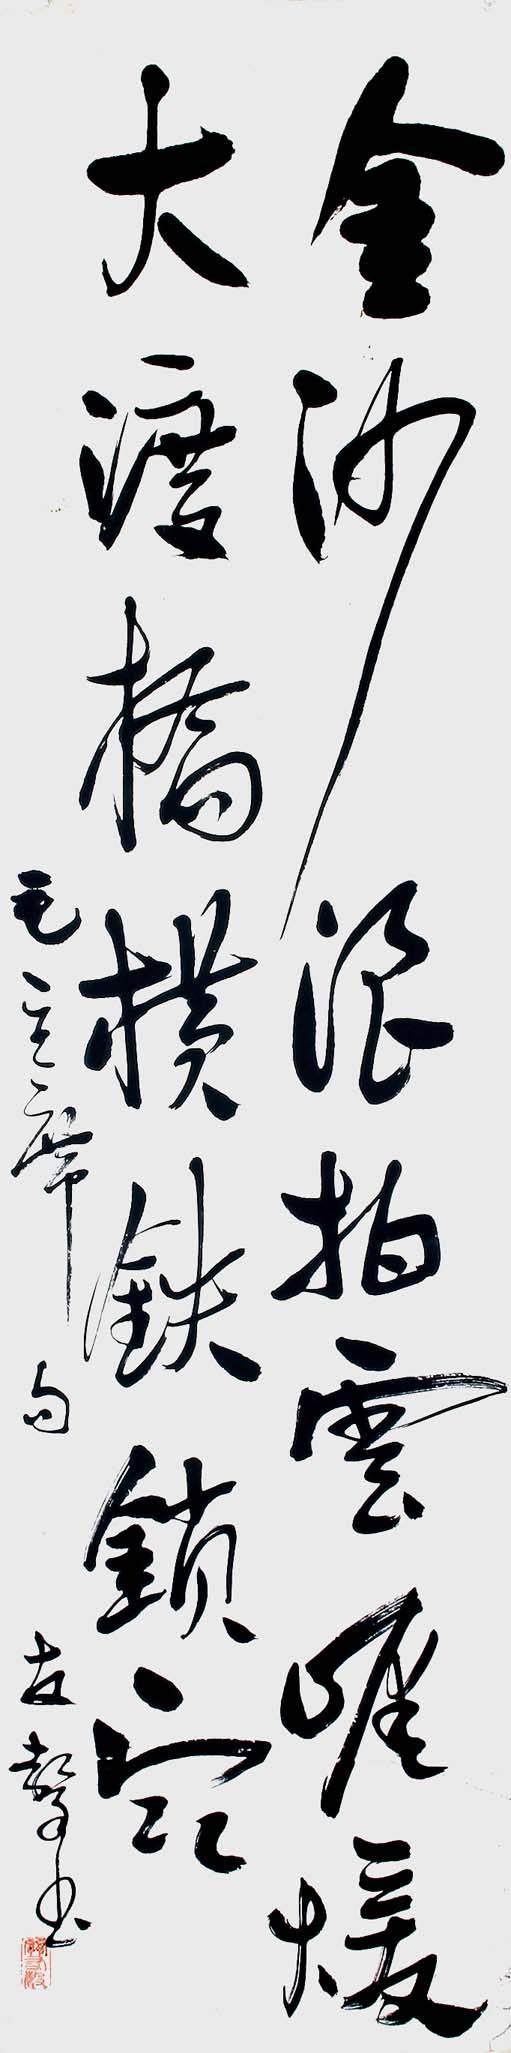 金沙浪拍雲崖煖
大渡橋横鉄鎖寒
毛主席句
友书